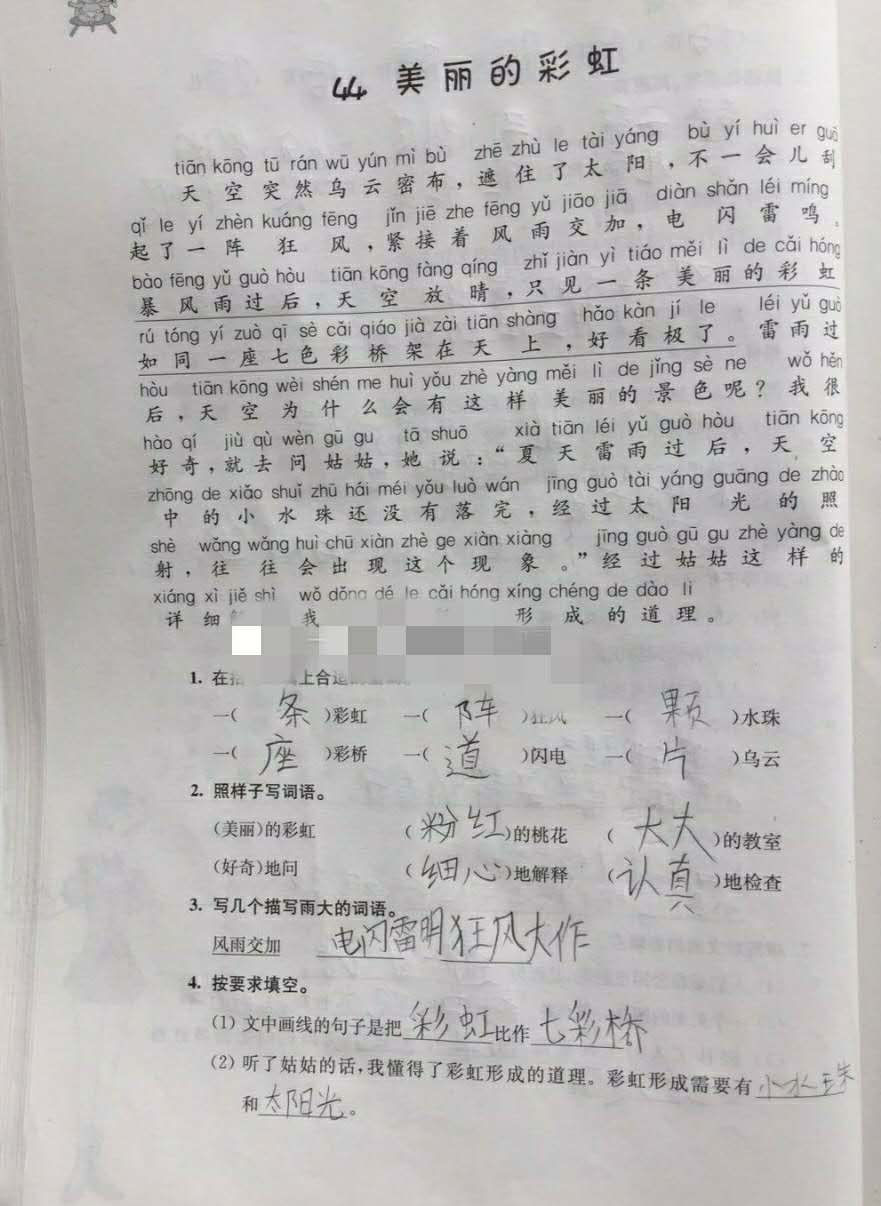 44 美丽的彩虹
tiān kōng tū rán wū yún mì bù zhē zhù le tài yáng bù yí huì er guā
天空突然乌云密布，遮住了太阳，不一会儿刮
qǐ le yí zhèn kuáng fēng jǐn jiē zhe fēng yǔ jiāo jiā diàn shǎn léi míng
起了一阵狂风，紧接着风雨交加，电闪雷鸣。
bào fēng yǔ guò hòu tiān kōng fàng qíng zhǐ jiàn yì tiáo měi lì de cǎi hóng
暴风雨过后，天空放晴，只见一条美丽的彩虹
rú tóng yí zuò qī sè cǎi qiáo jià zài tiān shàng hǎo kàn jí le léi yǔ guò
如同一座七色彩桥架在天上，好看极了。雷雨过
hòu tiān kōng wèi shén me huì yǒu zhè yàng měi lì de jǐng sè ne wǒ hěn
后，天空为什么会有这样美丽的景色呢？我很
hào qí jiù qù wèn gū gu tā shuō xià tiān léi yǔ guò hòu tiān kōng
好奇，就去问姑姑，她说：“夏天雷雨过后，天空
zhōng de xiǎo shuǐ zhū hái méi yǒu luò wán jīng guò tài yáng guāng de zhào
中的小水珠还没有落完，经过太阳光的照
shè wǎng wǎng huì chū xiàn zhè ge xiàn xiàng jīng guò gū gu zhè yàng de
射，往往会出现这个现象。”经过姑姑这样的
xiáng xì jiě shì wǒ dǒng dé le cǎi hóng xíng chéng de dào li
详细 我 形成的道理。
1. 在括 上合适
一（条）彩虹 一（阵）狂风 一（颗）水珠
一（座）彩桥 一（道）闪电 一（片）乌云
2. 照样子写词语。
（美丽）的彩虹 （粉红）的桃花 （大大）的教室
（好奇）地问 （细心）地解释 （认真）地检查
3. 写几个描写雨大的词语。
风雨交加 电闪雷明 狂风大作
4. 按要求填空。
（1）文中画线的句子是把彩虹比作七彩桥
（2）听了姑姑的话，我懂得了彩虹形成的道理。彩虹形成需要有小水珠
和太阳光。